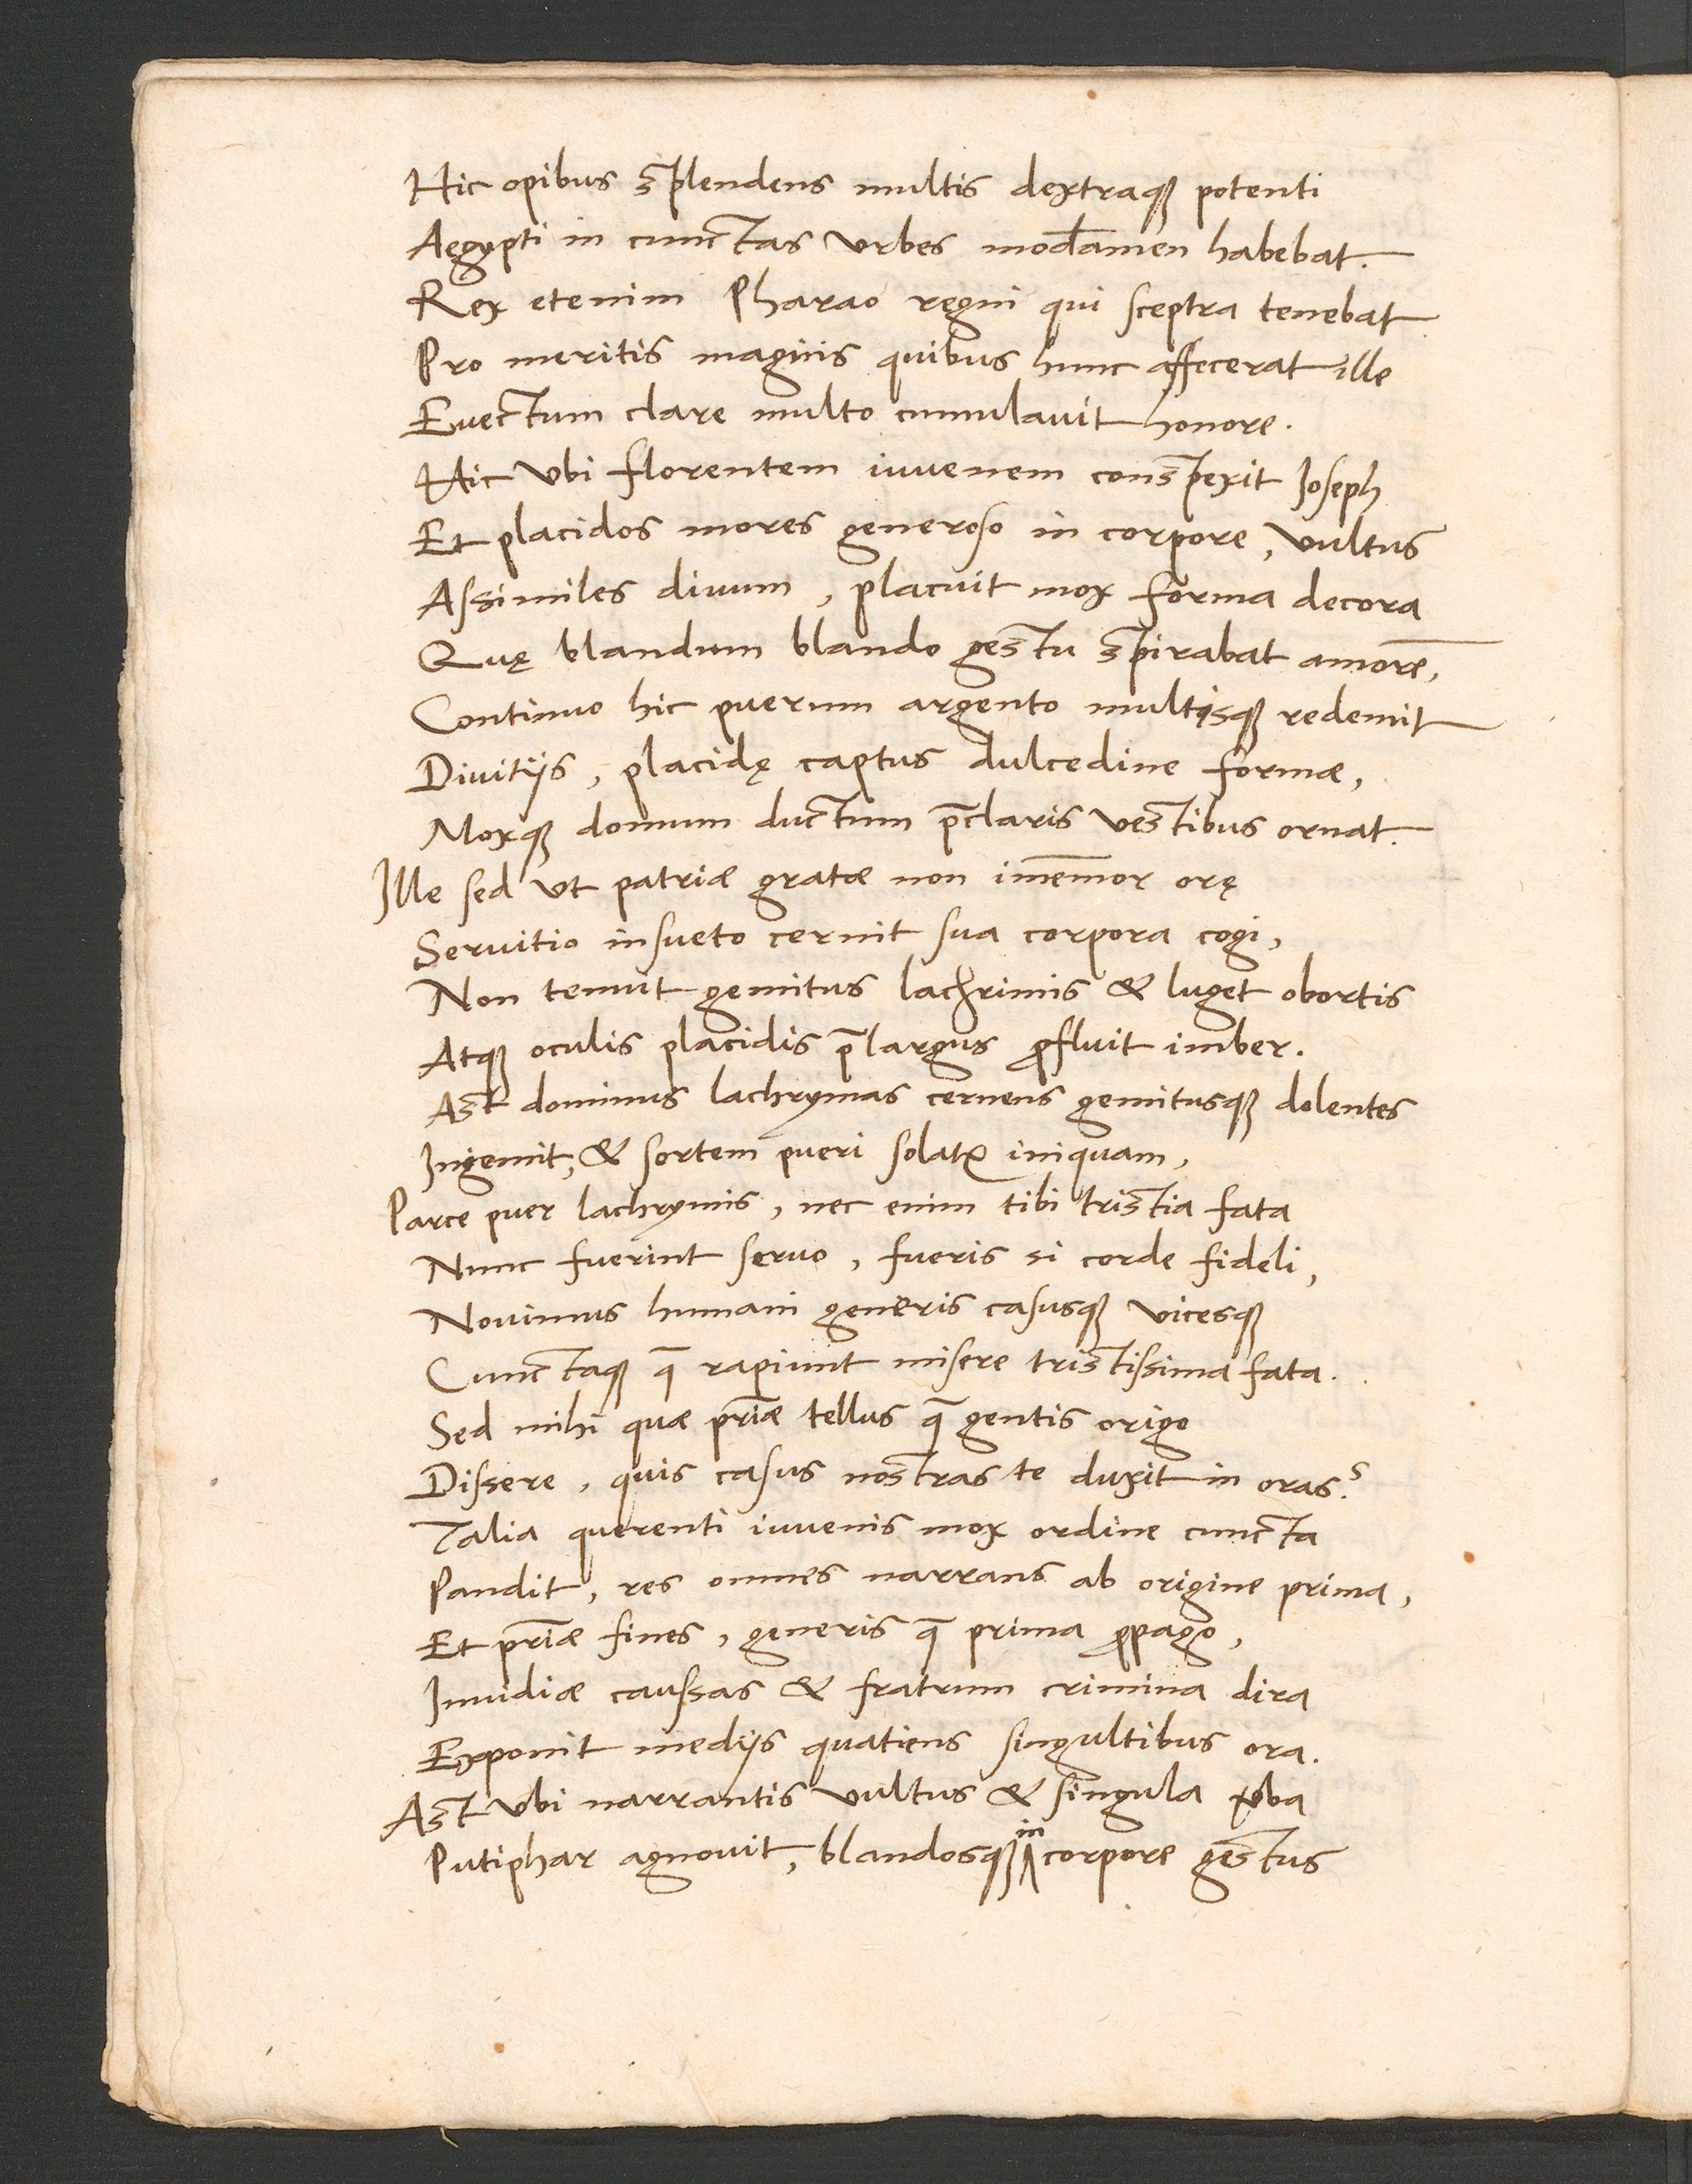 Hic opibus splendens multis dextraqꝫ potenti
Aegypti in cunctas vrbes mod̄amen habebat.
Rex etenim Pharao regni qui sceptra tenebat
Pro meritis magnis quibus hunc affecerat ille
Euectum clare multo cumulauit honore.
Hic vbi florentem iuuenem conspexit Joseph
Et placidos mores generoso in corpore, vultus
Assimiles diuum, placuit mox forma decora
Quę blandum blando gestu spirabat amorē,
Continuo hic puerum argento multisqꝫ redemit
Diuitijs, placidę captus dulcedine formæ,
Moxqꝫ domum ductum p̄claris vestibus ornat.
Ille sed vt patriæ gratæ non im̄emor orę
Seruitio insueto cernit sua corpora cogi,
Non tenuit gemitus lachrimis & luget obortis
Atqꝫ oculis placidis p̄largus ꝓfluit imber.
Ast dominus lachrymas cernens gemitusqꝫ dolentes
Ingemit, & sortem pueri solatꝰ iniquam,
Parce puer lachrymis, nec enim tibi tristia fata
Nunc fuerint seruo, fueris si corde fideli,
Nouimus humani generis casusqꝫ vicesqꝫ
Cunctaqꝫ q̄ rapiunt misere tristissima fata.
Sed mihi quæ pr̄iæ tellus q̄ gentis origo
Dissere, quis casus nostras te duxit in oras?
Talia querenti iuuenis mox ordine cuncta
Pandit, res omnes narrans ab origine prima,
Et pr̄iæ fines, generis q̄ prima ꝓpago,
Inuidiæ caussas & fratrum crimina dira
Exponit medijs quatiens singultibus ora.
Ast vbi narrantis vultus & singula v̄ba
Putiphar agnouit, blandosqꝫ in corpore gestus